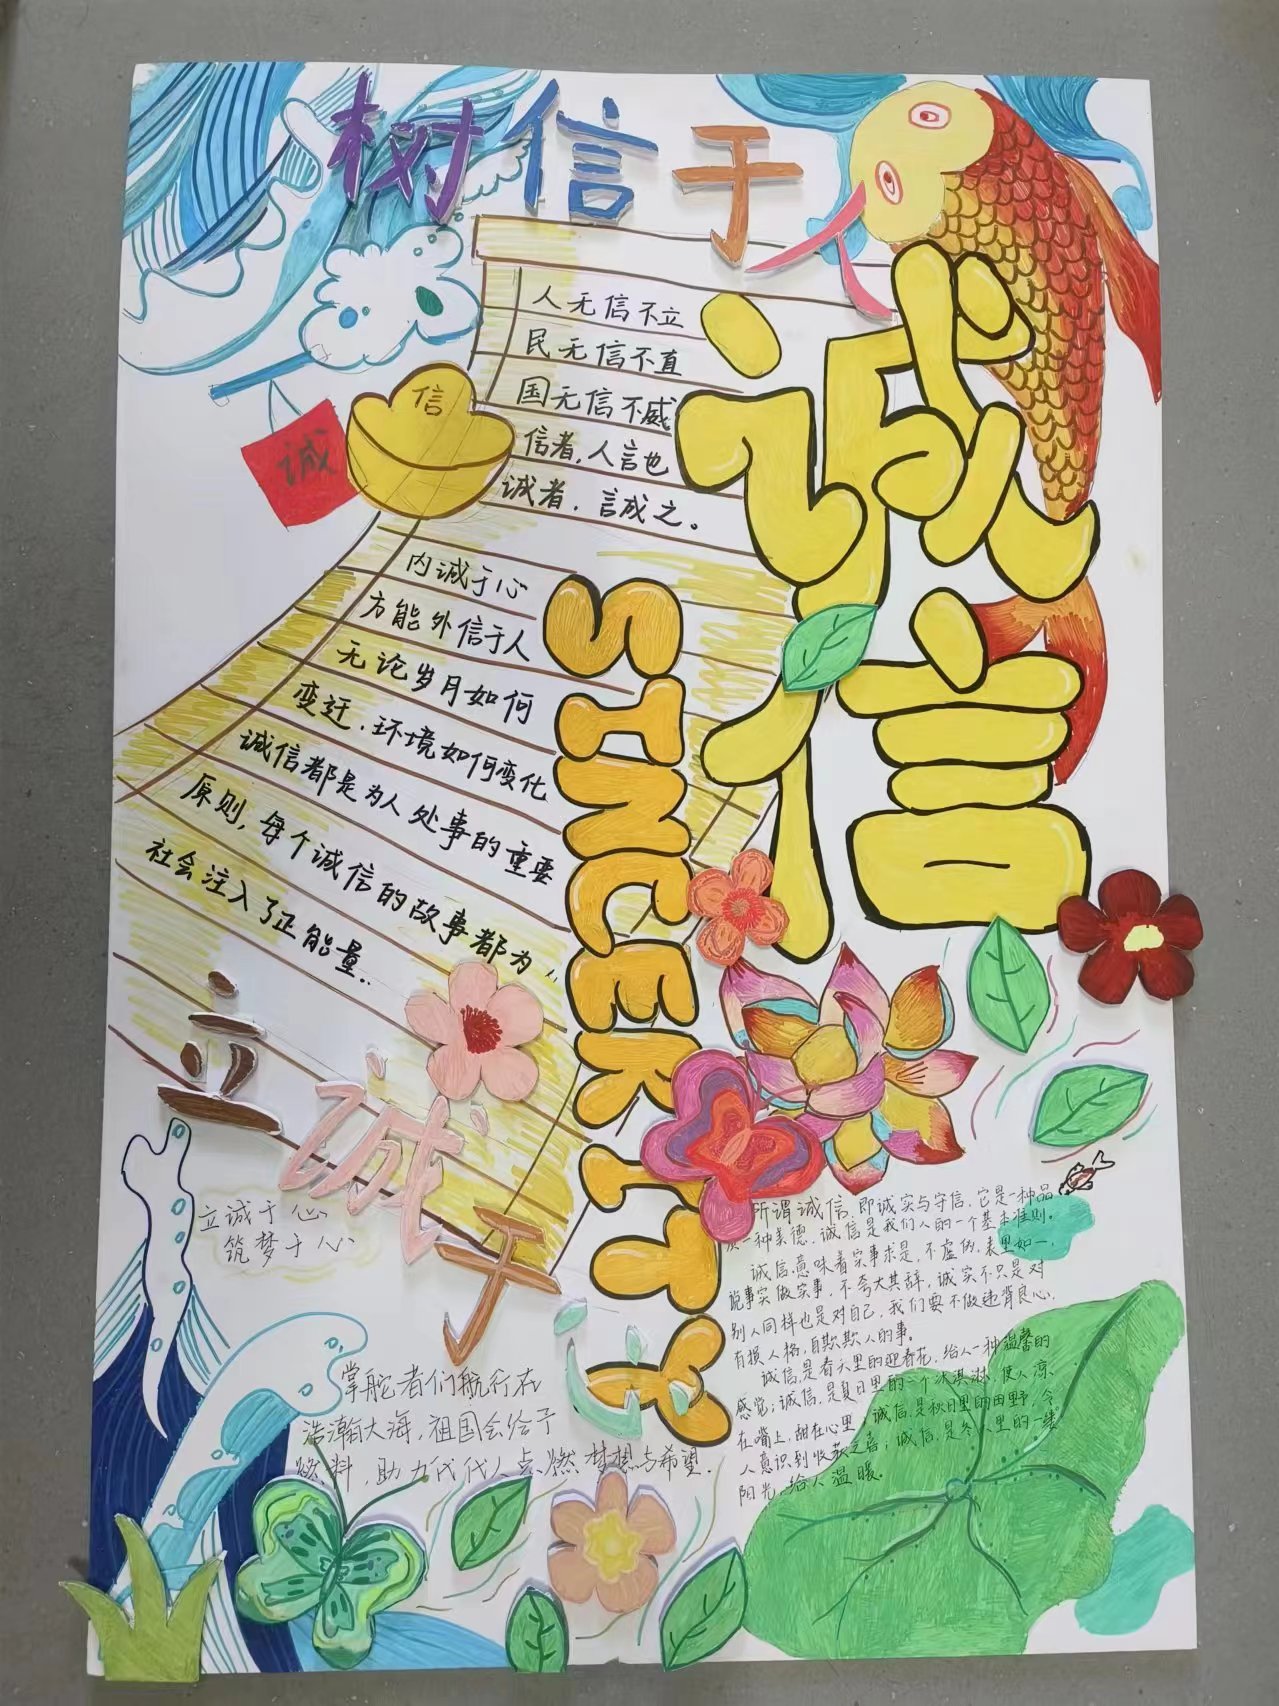 树信于人
诚信
SINCERITY
信
诚
人无信不立
民无信不直
国无信不威
信者,人言也
诚者,言成之。
内诚于心
方能外信于人
无论岁月如何
变迁,环境如何变化
诚信都是为人处事的重要
原则,每个诚信的故事都为
社会注入了正能量..
立诚于心
立诚于心
筑梦于心
掌舵者们航行在
浩瀚大海,祖国会给予
燃料,助力代代人点燃梦想与希望.
所谓诚信,即诚实与守信,它是一种品
质一种美德,诚信是我们人的一个基本准则。
诚信意味着实事求是,不虚伪,表里如一,
说事实做实事,不夸大其辞,诚实不只是对
别人同样也是对自己,我们要不做违背良心,
有损人格,自欺欺人的事。
诚信,是春天里的迎春花,给人一种温馨的
感觉;诚信,是夏日里的一个冰淇淋,使人凉
在嘴上,甜在心里;诚信,是秋日里的田野,令
人意识到收获之喜;诚信,是冬天里的一缕
阳光,给人温暖。